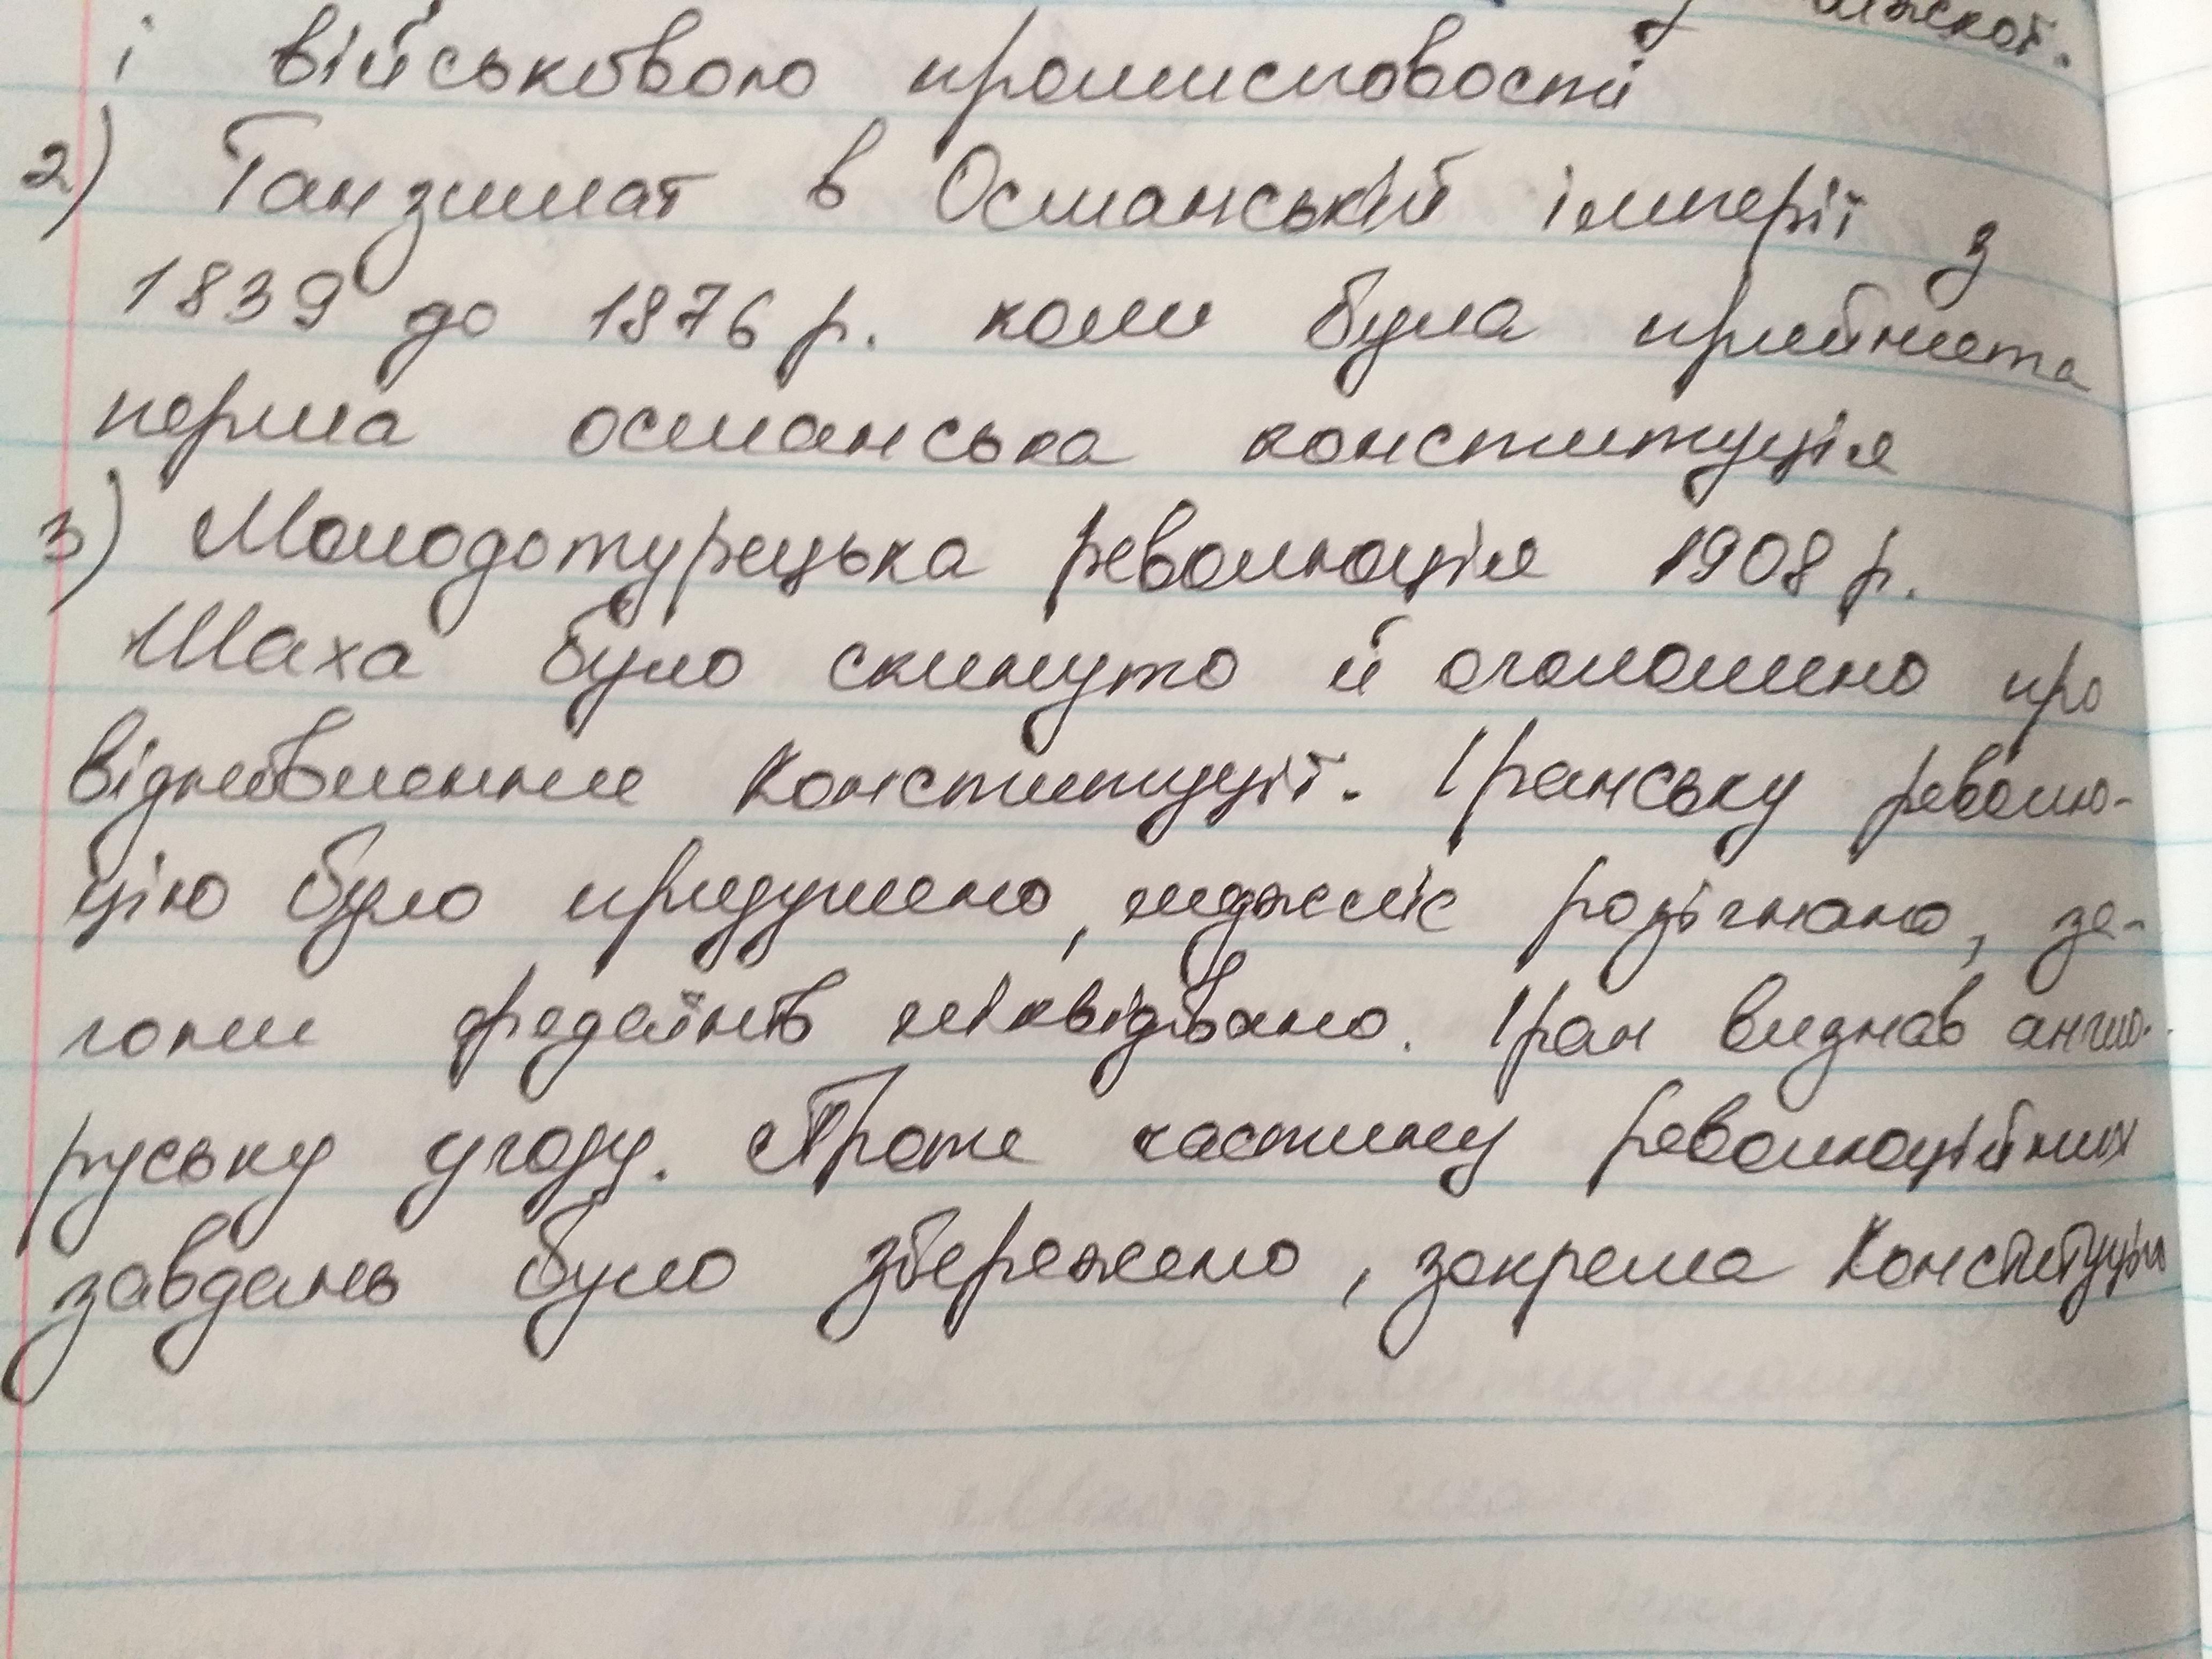 і військового промисловості
2) Танзимат в Османській імперії з
1839 до 1876 р. коли була прийнята
перша османська конституція
3) Молодотурецька революція 1908 р.
Шаха було скинуто й оголошено про
відновлення Конституції. Іранську револю-
цію було придушено, меджліс розігнано, за-
гони федаїнів ліквідовано. Іран визнав англо-
руську угоду. Проте частину революційних
завдань було збережено, зокрема Конституцію